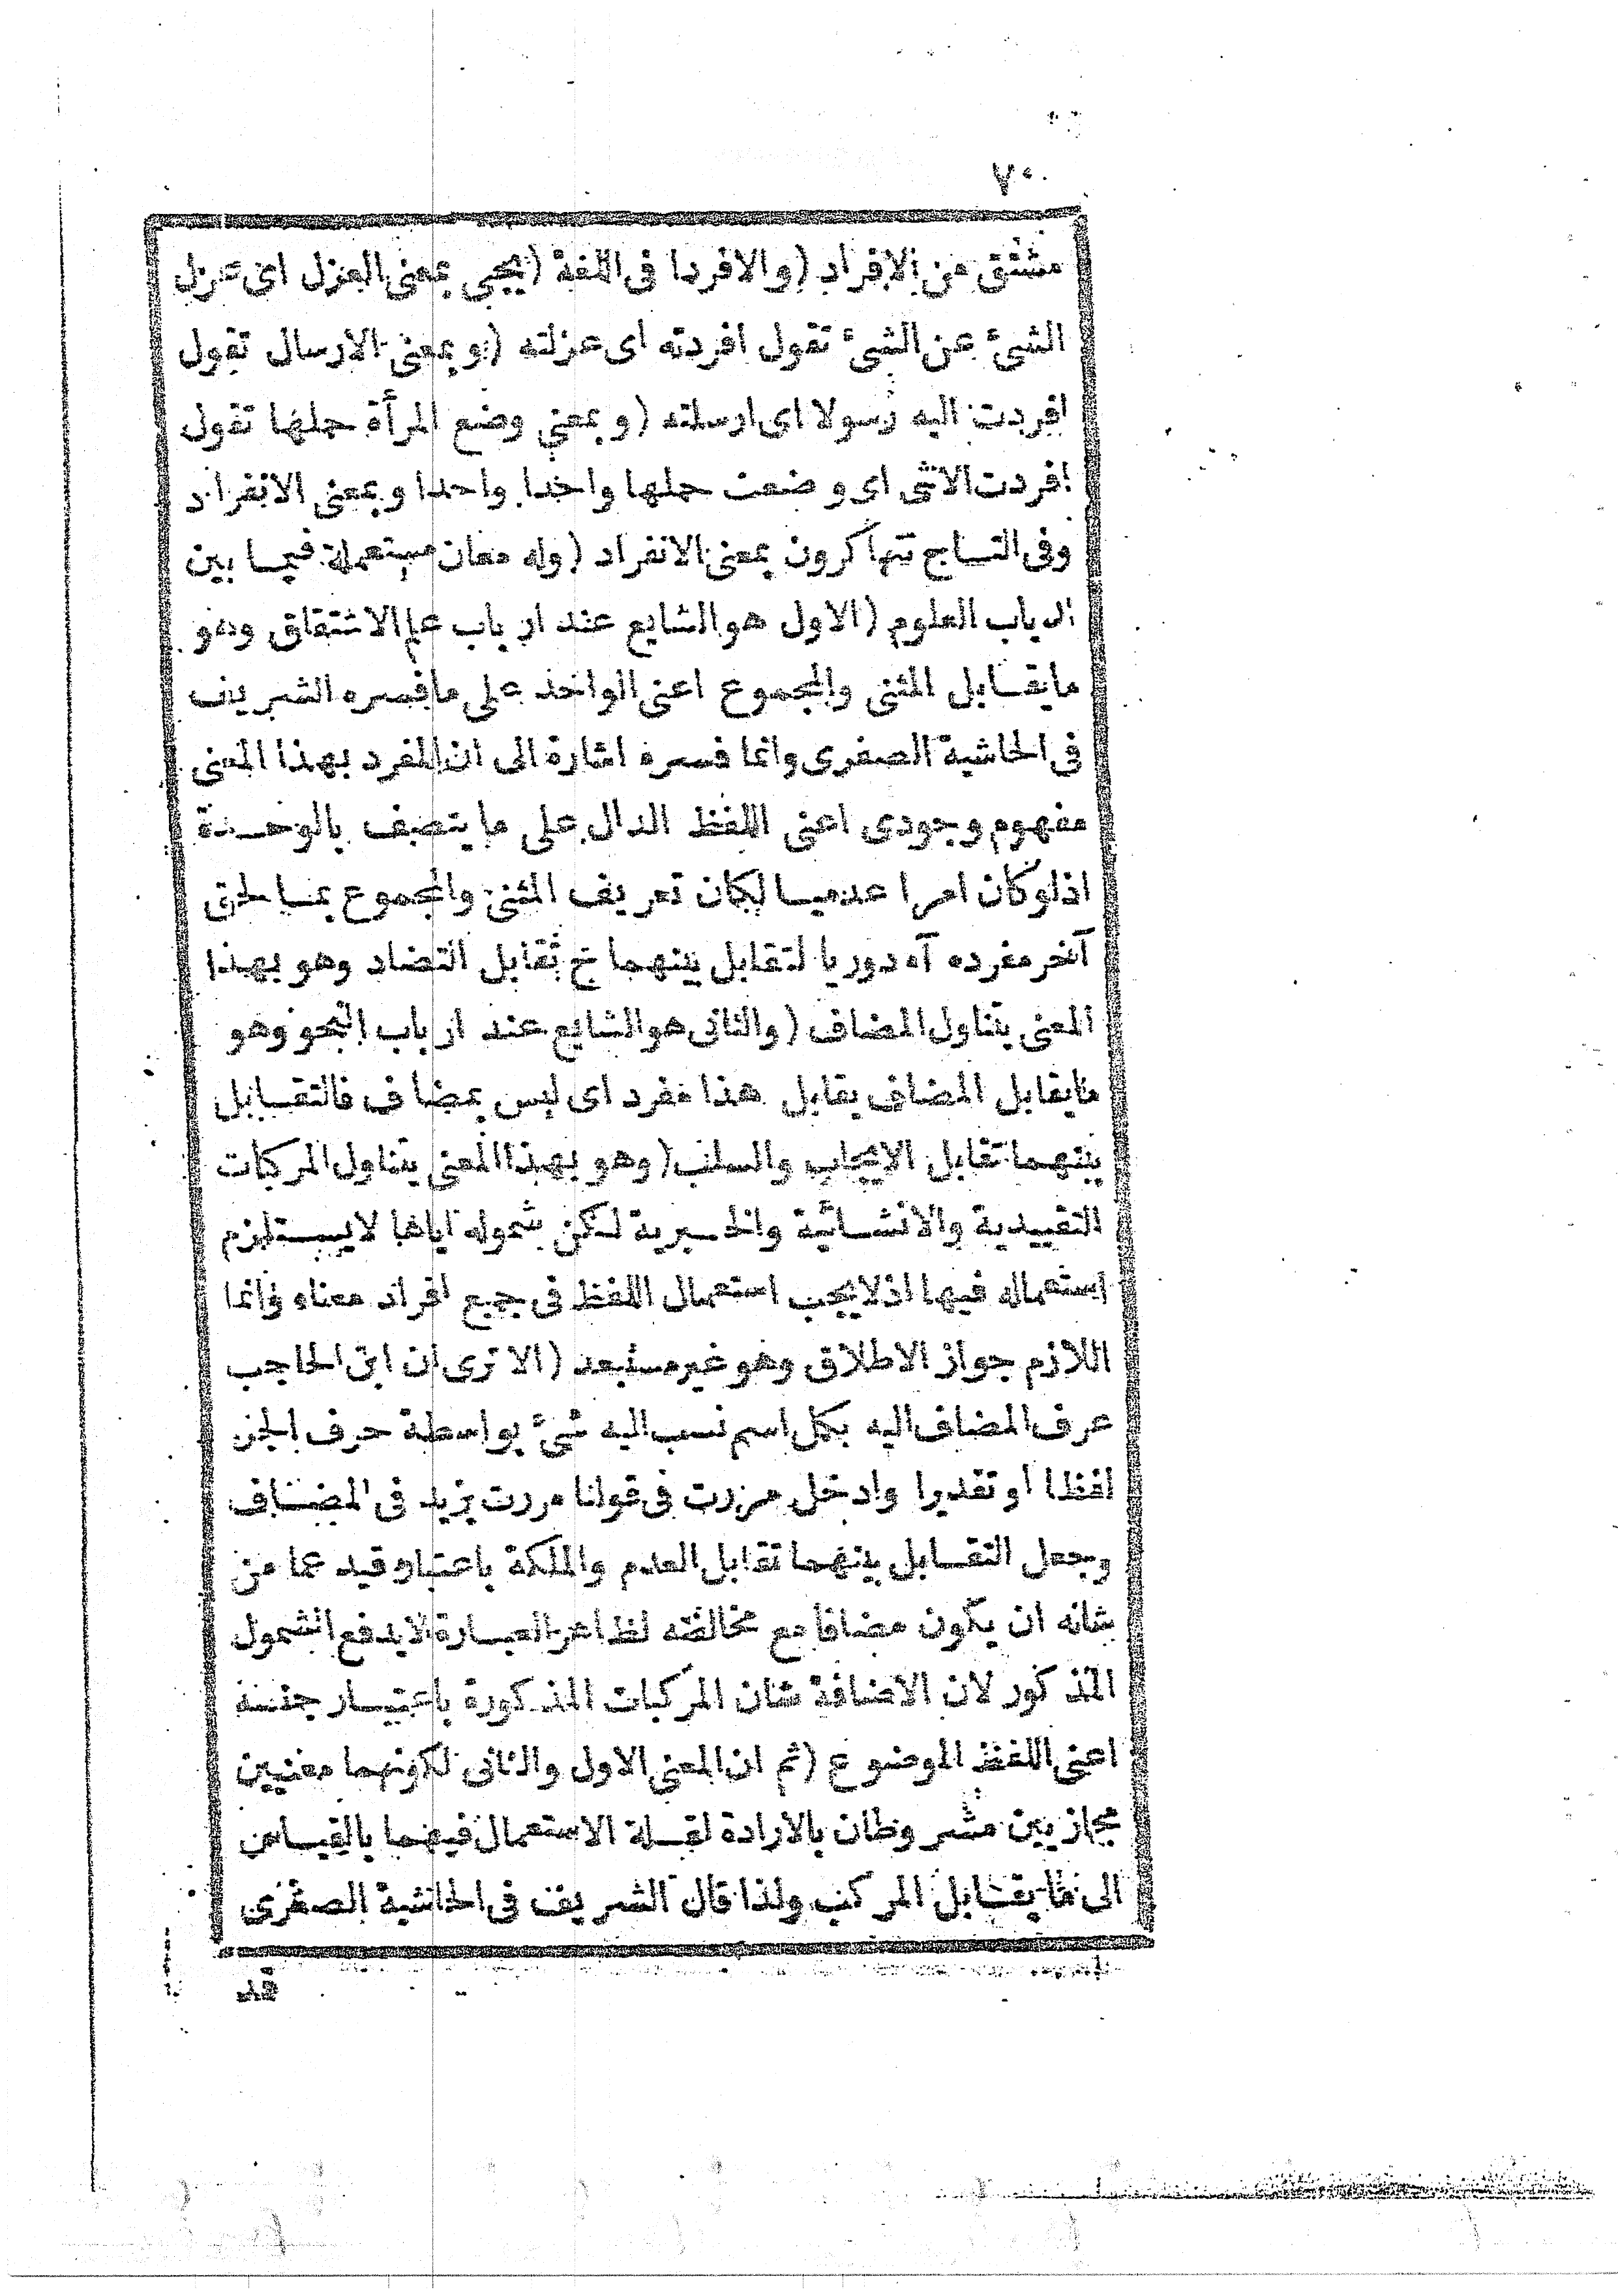 ٧٠
مشتق من الافراد (والافردا فى اللغة (يجيى بمعنى العزل اى عزل
الشئ عن الشئ تقول افردته اى عزلته (وبمعنى الارسال تقول
افردت اليه رسولا اى ارسلته (وبمعنى وضع المرأة حملها تقول
افردت الانثى اى وضعت حملها واحدا واحدا وبمعنى الانفراد
وفى التاج تنها كرون بمعنى الانفراد (وله معان مستعملة فيما بين
ارباب العلوم (الاول هو الشايع عند ارباب علم الاشتقاق وهو
ما يقابل المثنى والمجموع اعنى الواحد على ما فسره الشريف
فى الحاشية الصغرى وانما فسره اشارة الى ان المفرد بهذا المعنى
مفهوم وجودى اعنى اللفظ الدال على ما يتصف بالوحدة
اذلو كان امرا عدميا لكان تعريف المثنى والمجموع بما لحق
آخر مفرده آه دوريا لتقابل بينهما ح تقابل التضاد وهو بهذا
المعنى يتناول المضاف (والثانى هو الشايع عند ارباب النحو وهو
ما يقابل المضاف يقابل هذا مفرد اى ليس بمضاف فالتقابل
بينهما تقابل الايجاب والسلب (وهو بهذا المعنى يتناول المركبات
التقييدية والانشائية والخبرية لكن شموله اياها لا يستلزم
استعماله فيها اذ لا يجب استعمال اللفظ فى جميع افراد معناه وانما
اللازم جواز الاطلاق وهو غير مستبعد (الا ترى ان ابن الحاجب
عرف المضاف اليه بكل اسم نسب اليه شئ بواسطة حرف الجر
لفظا او تقديرا وادخل مررت فى قولنا مررت بزيد فى المضاف
وجعل التقابل بينهما تقابل العدم والملكة باعتبار قيد عما من
شانه ان يكون مضافا مع مخالفته لظاهر العبارة لا يدفع الشمول
المذكور لان الاضافة شان المركبات المذكورة باعتبار جنسه
اعنى اللفظ الموضوع (ثم ان المعنى الاول والثانى لكونهما معنيين
مجازيين مشروطان بالارادة لقلة الاستعمال فيهما بالقياس
الى ما يقابل المركب ولذا قال الشريف فى الحاشية الصغرى
قد